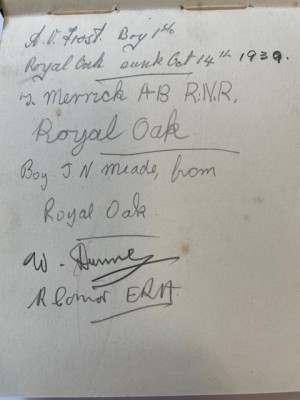 A. V. Frost. Boy 1st
Royal Oak sunk Oct 14th 1939.
Merrick AB R.N.R.
Royal Oak
Boy J. N Meade, from
Royal Oak.
W.
R Connor ERA.